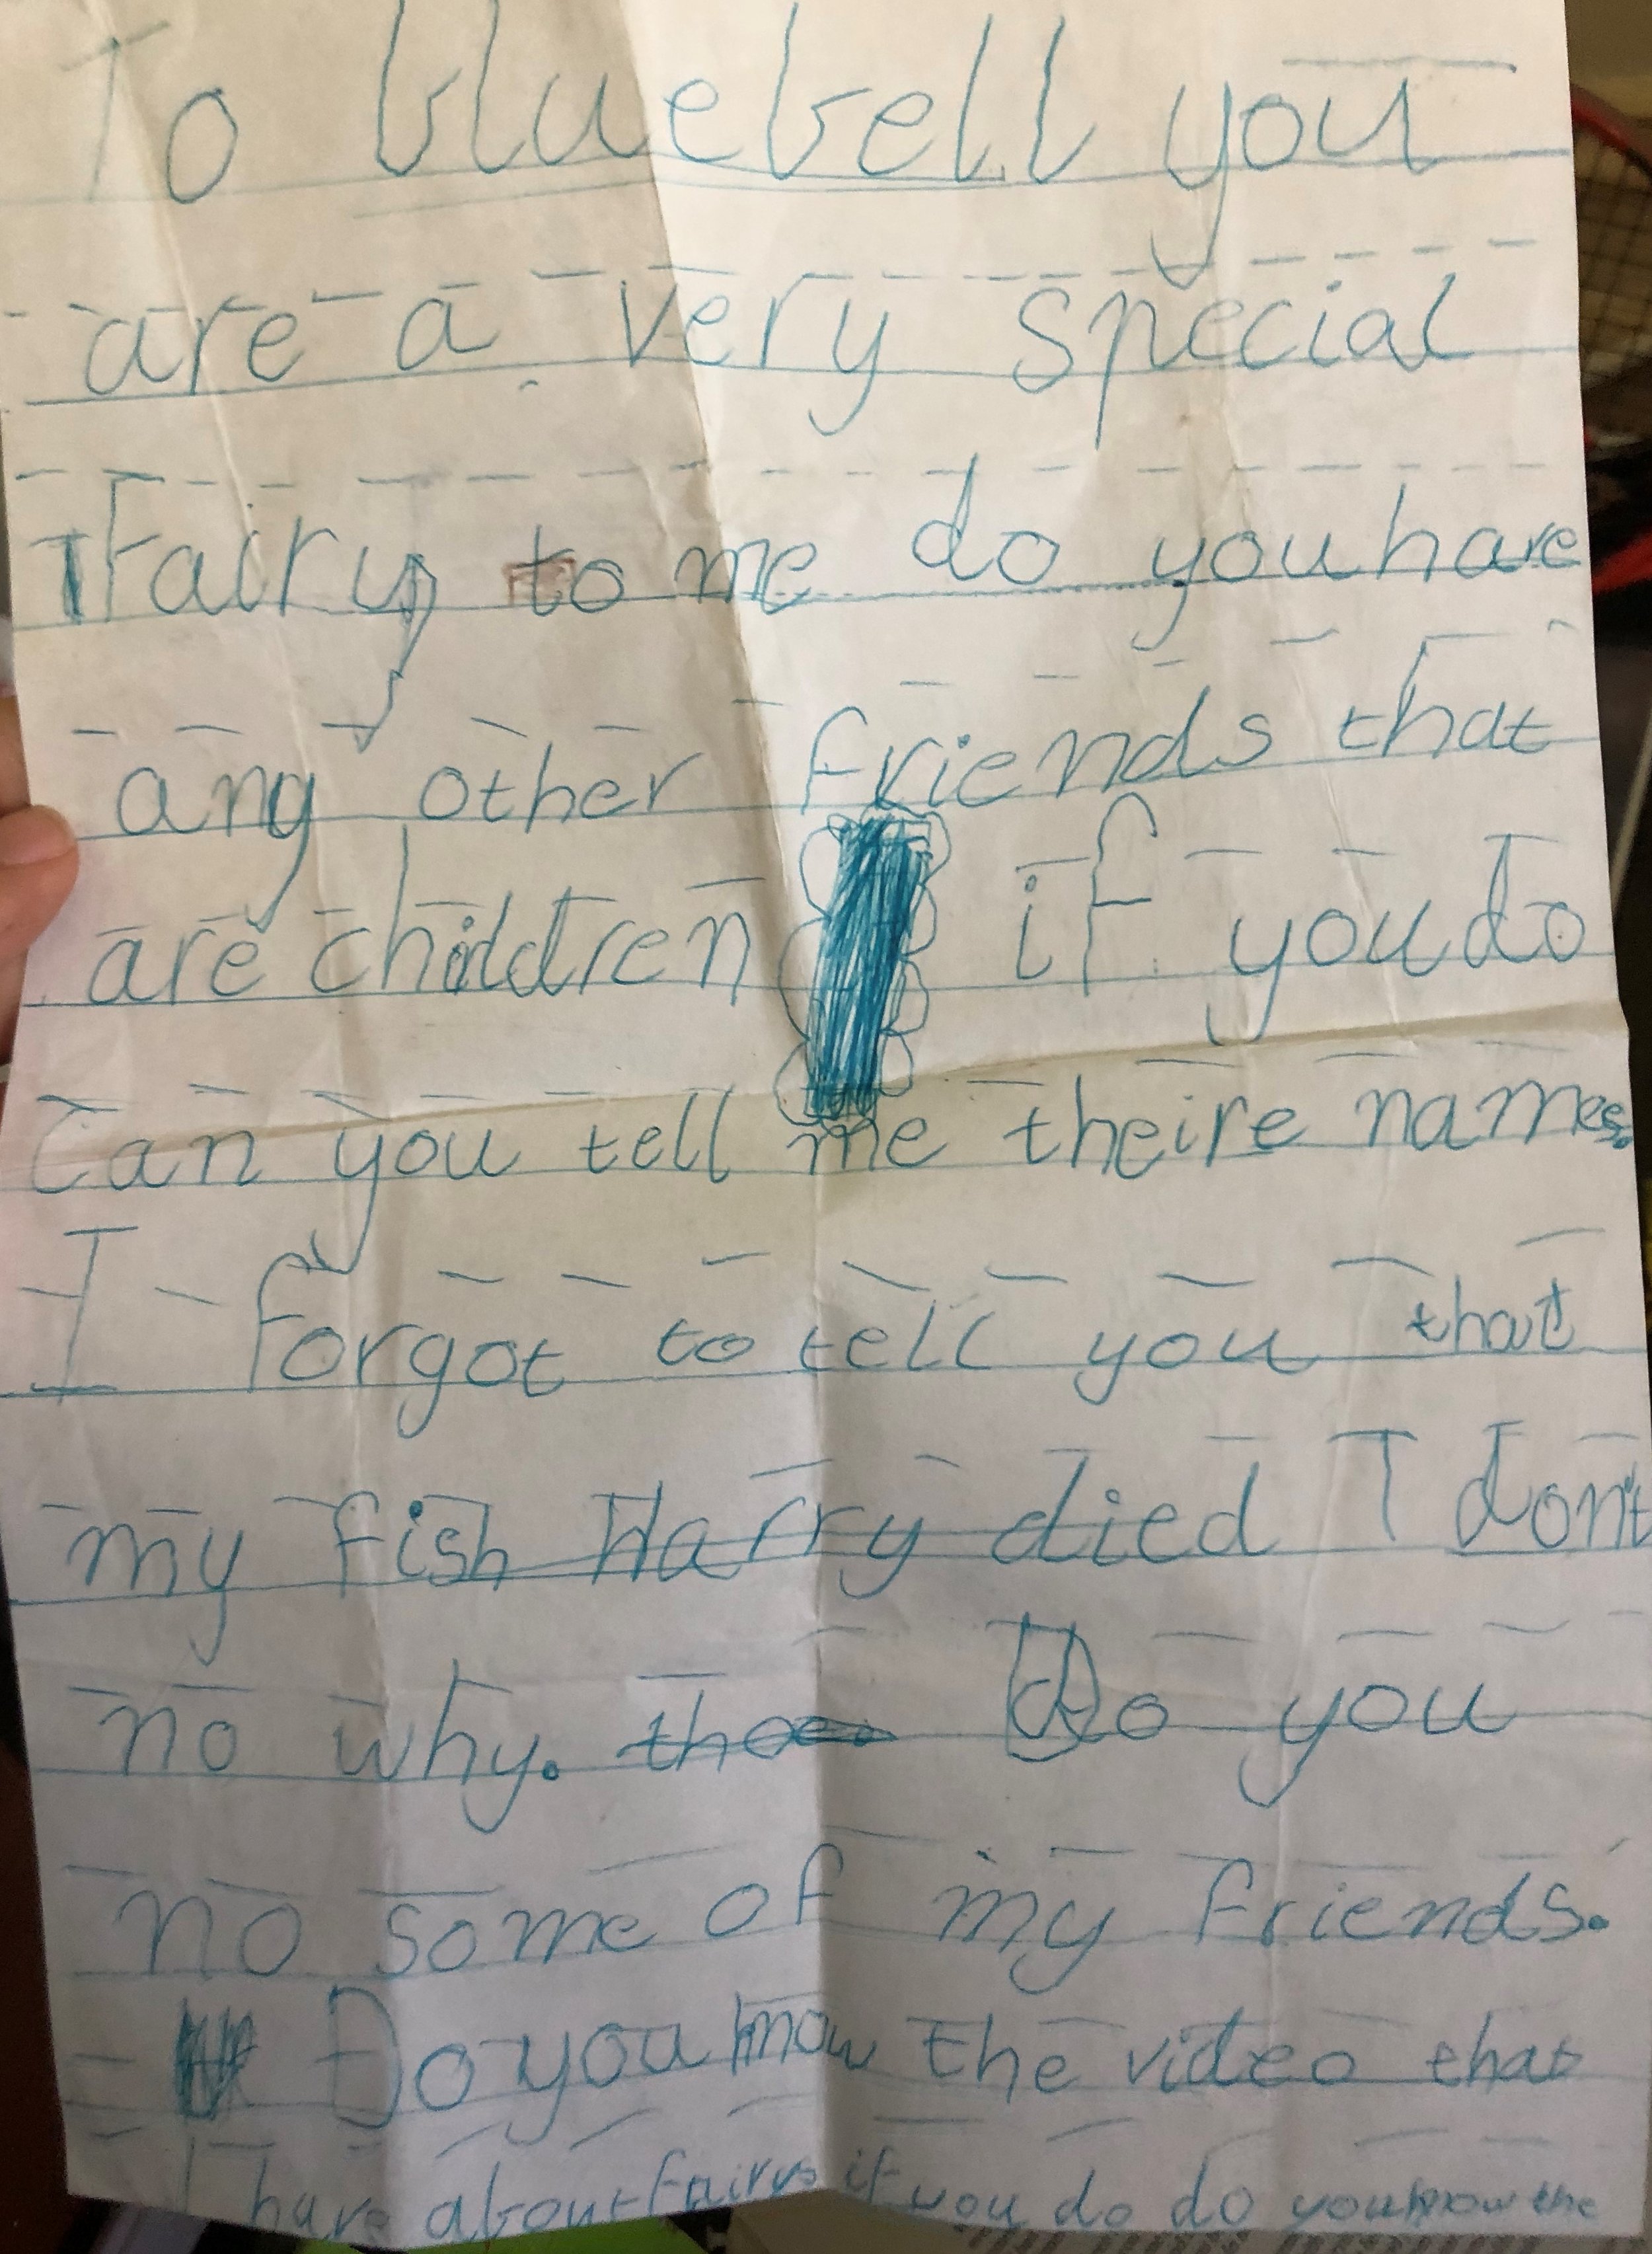 To bluebell you
are a very special
Fairy to me do you have
any other friends that
are children if you do
Can you tell me theire names.
I forgot to tell you that
my fish Harry died I don't
no why. Do you
no some of my friends.
Do you know the video that
I have about fairys if you do do you know the